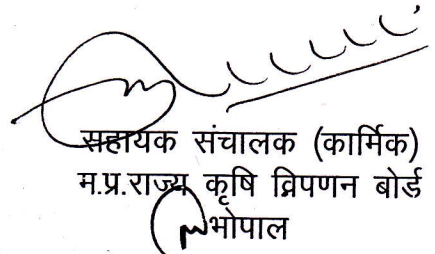 सहायक संचालक (कार्मिक)
म.प्र.राज्य कृषि विपणन बोर्ड
भोपाल